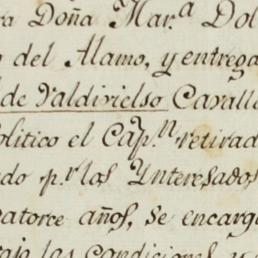 ra Doña Mar.ª Dol
del Alamo, y entrega
de Valdivielso Cavalle
olitico el Cap.ⁿ retirad
do p.r los Ynteresados
catorce años, se encarg
bajo las condiciones y